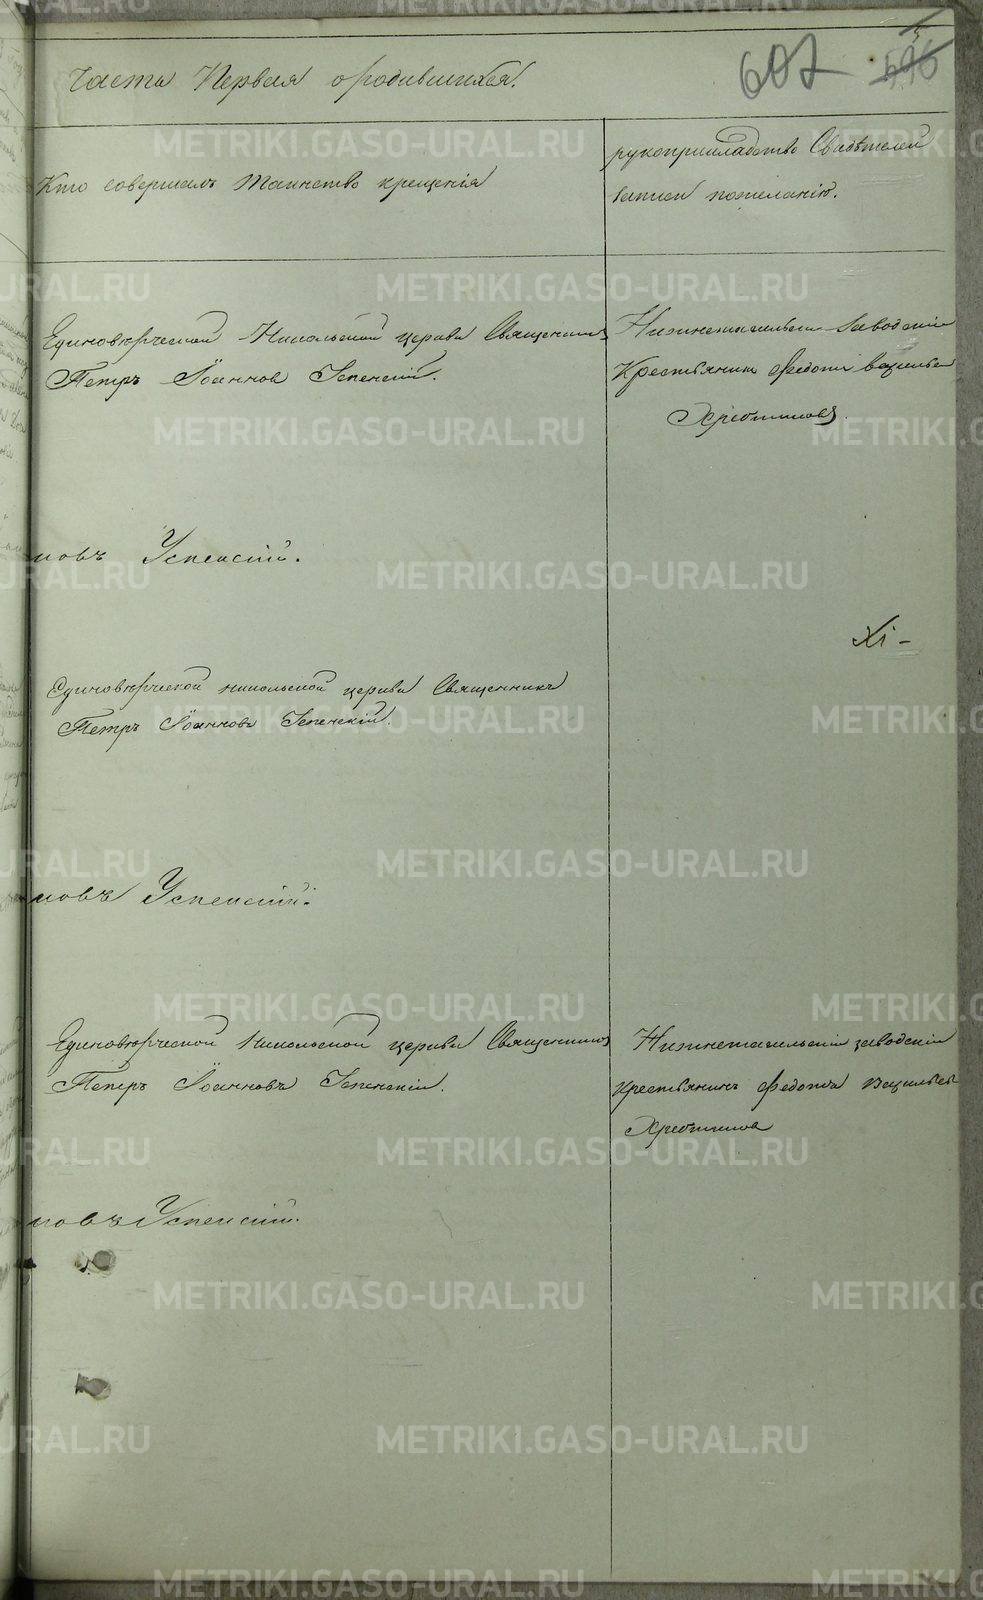 Часть Первая о родившихся.
607
596
Кто совершалъ Таинство крещенія
рукоприкладство Свидѣтелей
записи по желанію.
Единовѣрческой Никольской церкви Священникъ
Петръ Іоанновъ Успенскій.
Нижнетагильскій Заводскій
Крестьянинъ Федотъ Васильев
новъ Успенскій.
Единовѣрческой никольской церкви Священникъ
Петръ Іоанновъ Успенскій.
новъ Успенскій.
Единовѣрческой Никольской церкви Священникъ
Петръ Іоанновъ Успенскій.
Нижнетагильскій заводскій
крестьянинъ Федотъ Васильев
новъ Успенскій.
METRIKI.GASO-URAL.RU